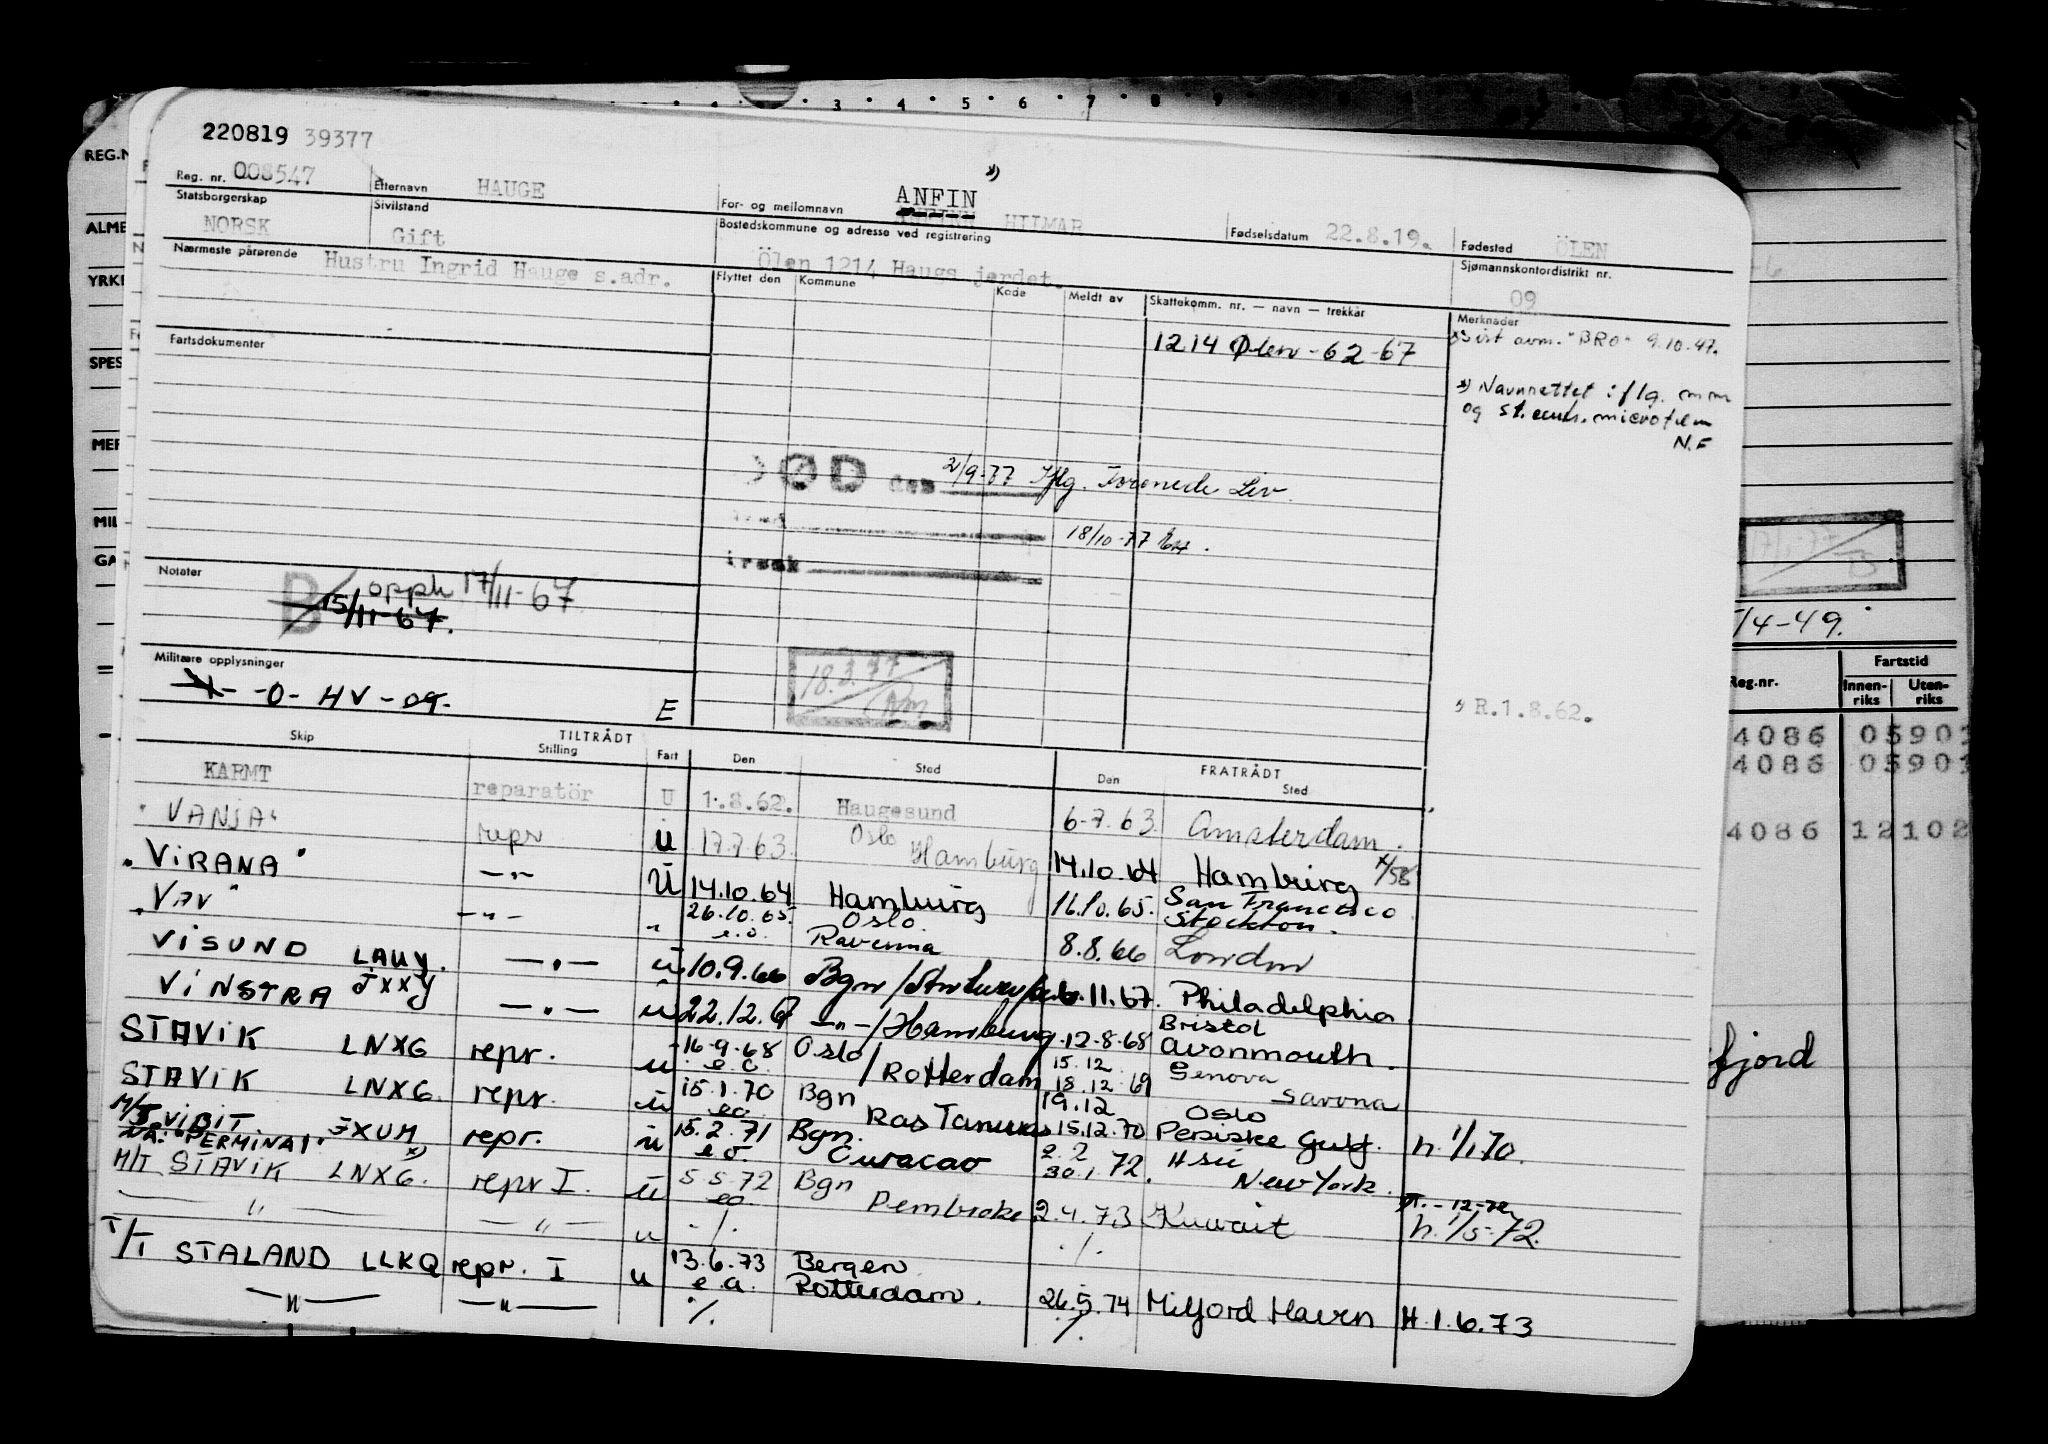 3 4 5 6 7 8 9
220819 39377
Reg. nr. 008547 Etternavn HAUGE For- og mellomnavn ANFIN HILMAR *) Fødselsdatum 22.8.19. Fødested ÖLEN
Statsborgerskap NORSK Sivilstand Gift Bostedskommune og adresse ved registrering Ölen 1214 Haugsjerdet. Sjømannskontordistrikt nr. 09
Nærmeste pårørende Hustru Ingrid Hauge s.adr. Flyttet den Kommune Kode Meldt av Skattekomm. nr. — navn — trekkår Merknader
1214 Ølen - 62 - 67
Sist avm. "BRO" 9.10.47.
Fartsdokumenter
*) Navnrettet iflg. mm
og st. microfilm
N.F
DØD den 2/9-77 Iflg. Forenede Liv.
18/10-77
irsak
Notater
B 15/11-67. opph 17/11-67
Militære opplysninger
-0- HV - 09. E
18.3.77
R.1.8.62.
TILTRÅDT FRATRÅDT
Skip Stilling Fart Den Sted Den Sted
KARMT reparatör U 1.8.62. Haugesund 6-7.63. Amsterdam.
"VANJA" repr u 17.7.63. Oslo Hamburg 14.10.64 Hamburg
"VIRANA" -"- U 14.10.64 Hamburg 16.10.65. San Francisco Stockton.
"VAV" -"- " 26.10.65. e.o. Oslo. Ravenna 8.8.66 London
VISUND LAUY. -"- u 10.9.66 Bgn 6.11.67. Philadelphia
VINSTRA JXXY -"- u 22.12.67 -"-/Hamburg 12-8-68 Bristol Avonmouth.
STAVIK LNXG repr. u 16-9-68 e.o. Oslo/Rotterdam 15.12 18.12.69 Genova Savona
STAVIK LNXG. repr. u 15.1.70 eo Bgn Ras Tanura 19.12 15.12.70 Oslo Persiske Gulf. h. 1/1 70.
M/S VIBIT JXUM repr. u 15.2.71 e.o. Bgn. Curacao 2.2 30.1.72. Hsu New York.
NÅ: "PERMINA I" *)
M/T STAVIK LNXG. repr I. u 5.5.72 eo Bgn Pembroke 2.4.73 Kuwait -12-72 h. 1/5-72.
— " — — " — u ./. ./.
T/T STALAND LLKQ repr. I u 13.6.73 e.o. Bergen Rotterdam. 26.5.74 Milford Haven H.1.6.73
— " — — " — ./. ./.
REG.N
ALME
YRKE
SPES
MER
MIL
GA
/4-49.
Reg.nr. Fartstid
Innen- riks Uten- riks
4086 05901
4086 05901
4086 12102
fjord